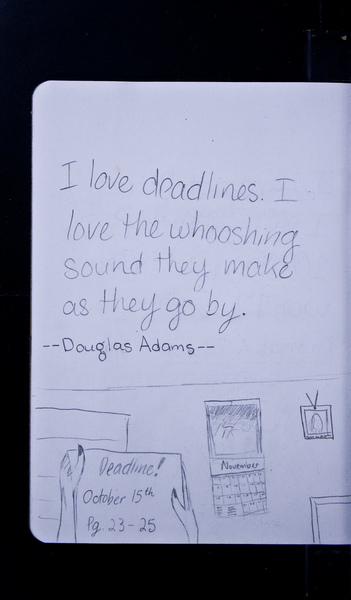 I love deadlines. I
love the whooshing
sound they make
as they go by.
--Douglas Adams--
November
Deadline!
October 15th
Pg. 23-25